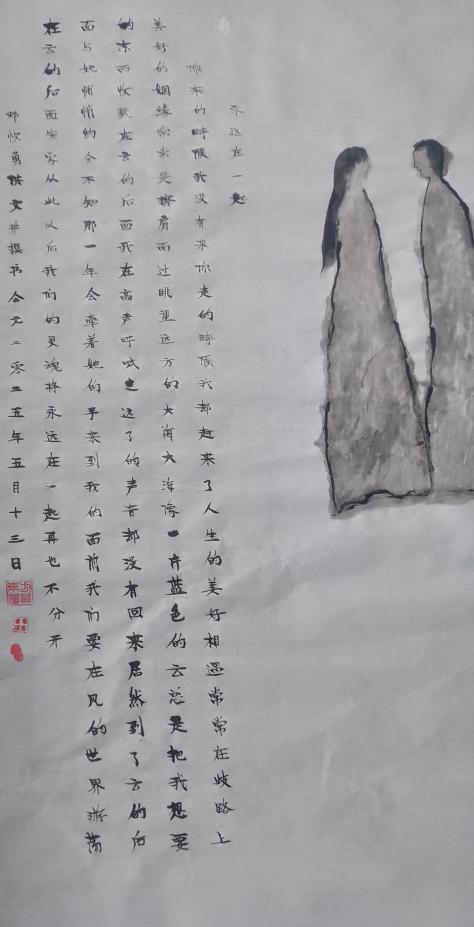 永远在一起
你来的時候我没有来你走的時候我却赶来了人生的美好相遇常常在歧路上
美好的姻缘常常是擦肩而过眺望远方的大海大海像一片蓝色的云总是把我想要
的东西收藏在云的后面我在高声呼喊走远了的声音都没有回来居然到了云的后
面与她悄悄约会不知那一年会牵着她的手来到我的面前我们要在风的世界游荡
在云的后面安家从此以后我们的灵魂将永远在一起再也不分开
勇文并撰书公元二零二五年五月十三日